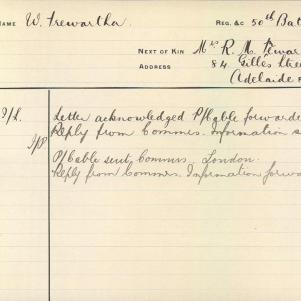 NAME W. Trewartha. REG. &c 50th Bat
NEXT OF KIN Mrs R. M. Trewar
ADDRESS 84 Gilles Stree
Adelaide
Letter acknowledged P/Cable forwarde
Reply from Commrs. Information s
P/Cable sent Commrs. London.
Reply from Commrs. Information forwa